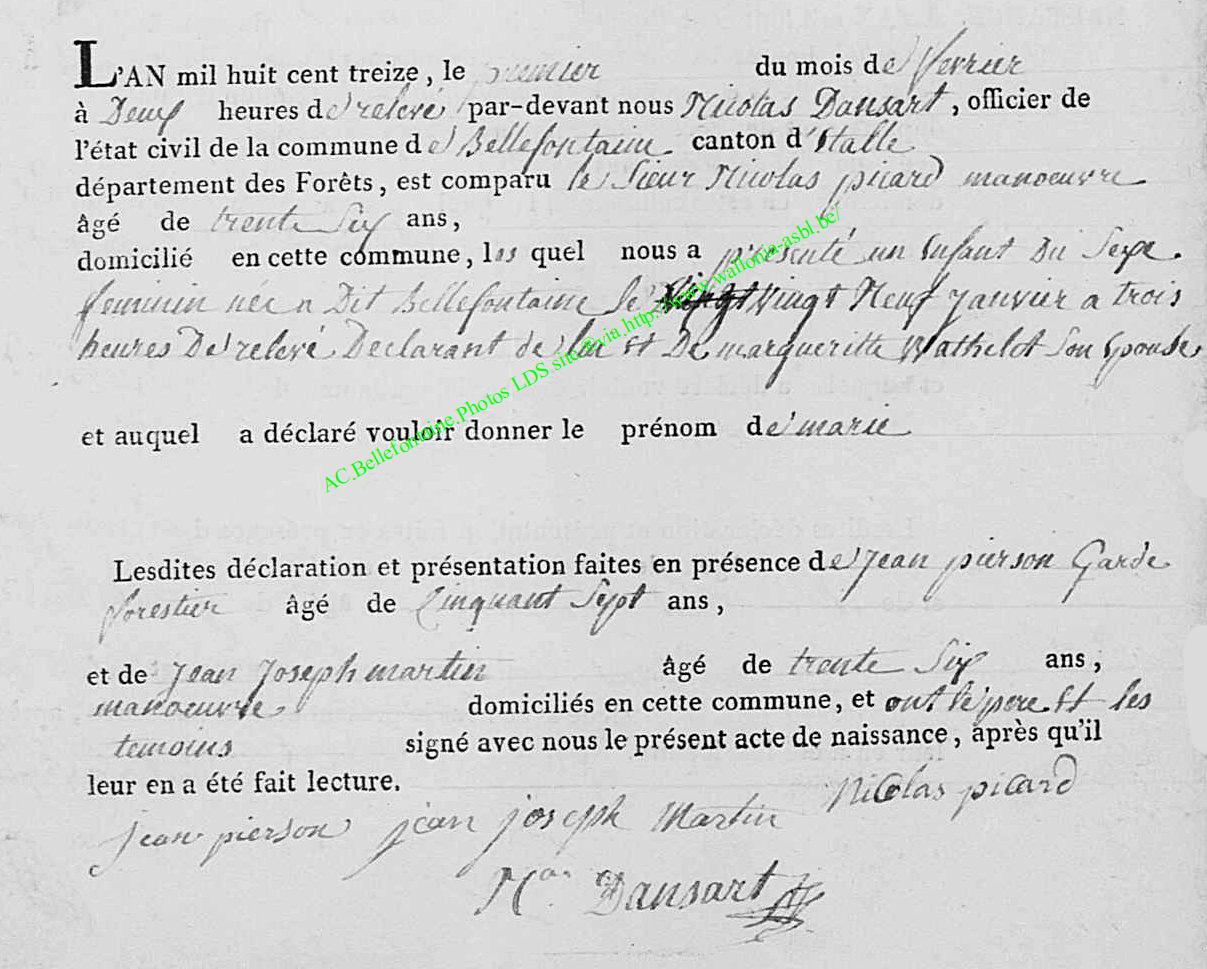 L'AN mil huit cent treize, le premier du mois de fevrier
à Deux heures de relevé par-devant nous Nicolas Dansart, officier de
l'état civil de la commune de Bellefontaine canton d'Etalle
département des Forêts, est comparu le Sieur Nicolas picard manoeuvre
âgé de trente Six ans,
domicilié en cette commune, les quel nous a présenté un Enfant Du Sexe
feminin née a Dit Bellefontaine le vingt vingt Neuf janvier a trois
heures De relevé Declarant de lui Et De margueritte Wathelot Son Epouse
et auquel a déclaré vouloir donner le prénom de marie
AC.Bellefontaine.Photos LDS site via http://www.wallonia-asbl.be/
Lesdites déclaration et présentation faites en présence de Jean pierson Garde
forestier âgé de Cinquant Sept ans,
et de Jean Joseph martin âgé de trente Six ans,
manoeuvre domiciliés en cette commune, et ont le pere Et les
temoins signé avec nous le présent acte de naissance, après qu'il
leur en a été fait lecture.
Nicolas picard
jean pierson jean joseph Martin
N.as Dansart